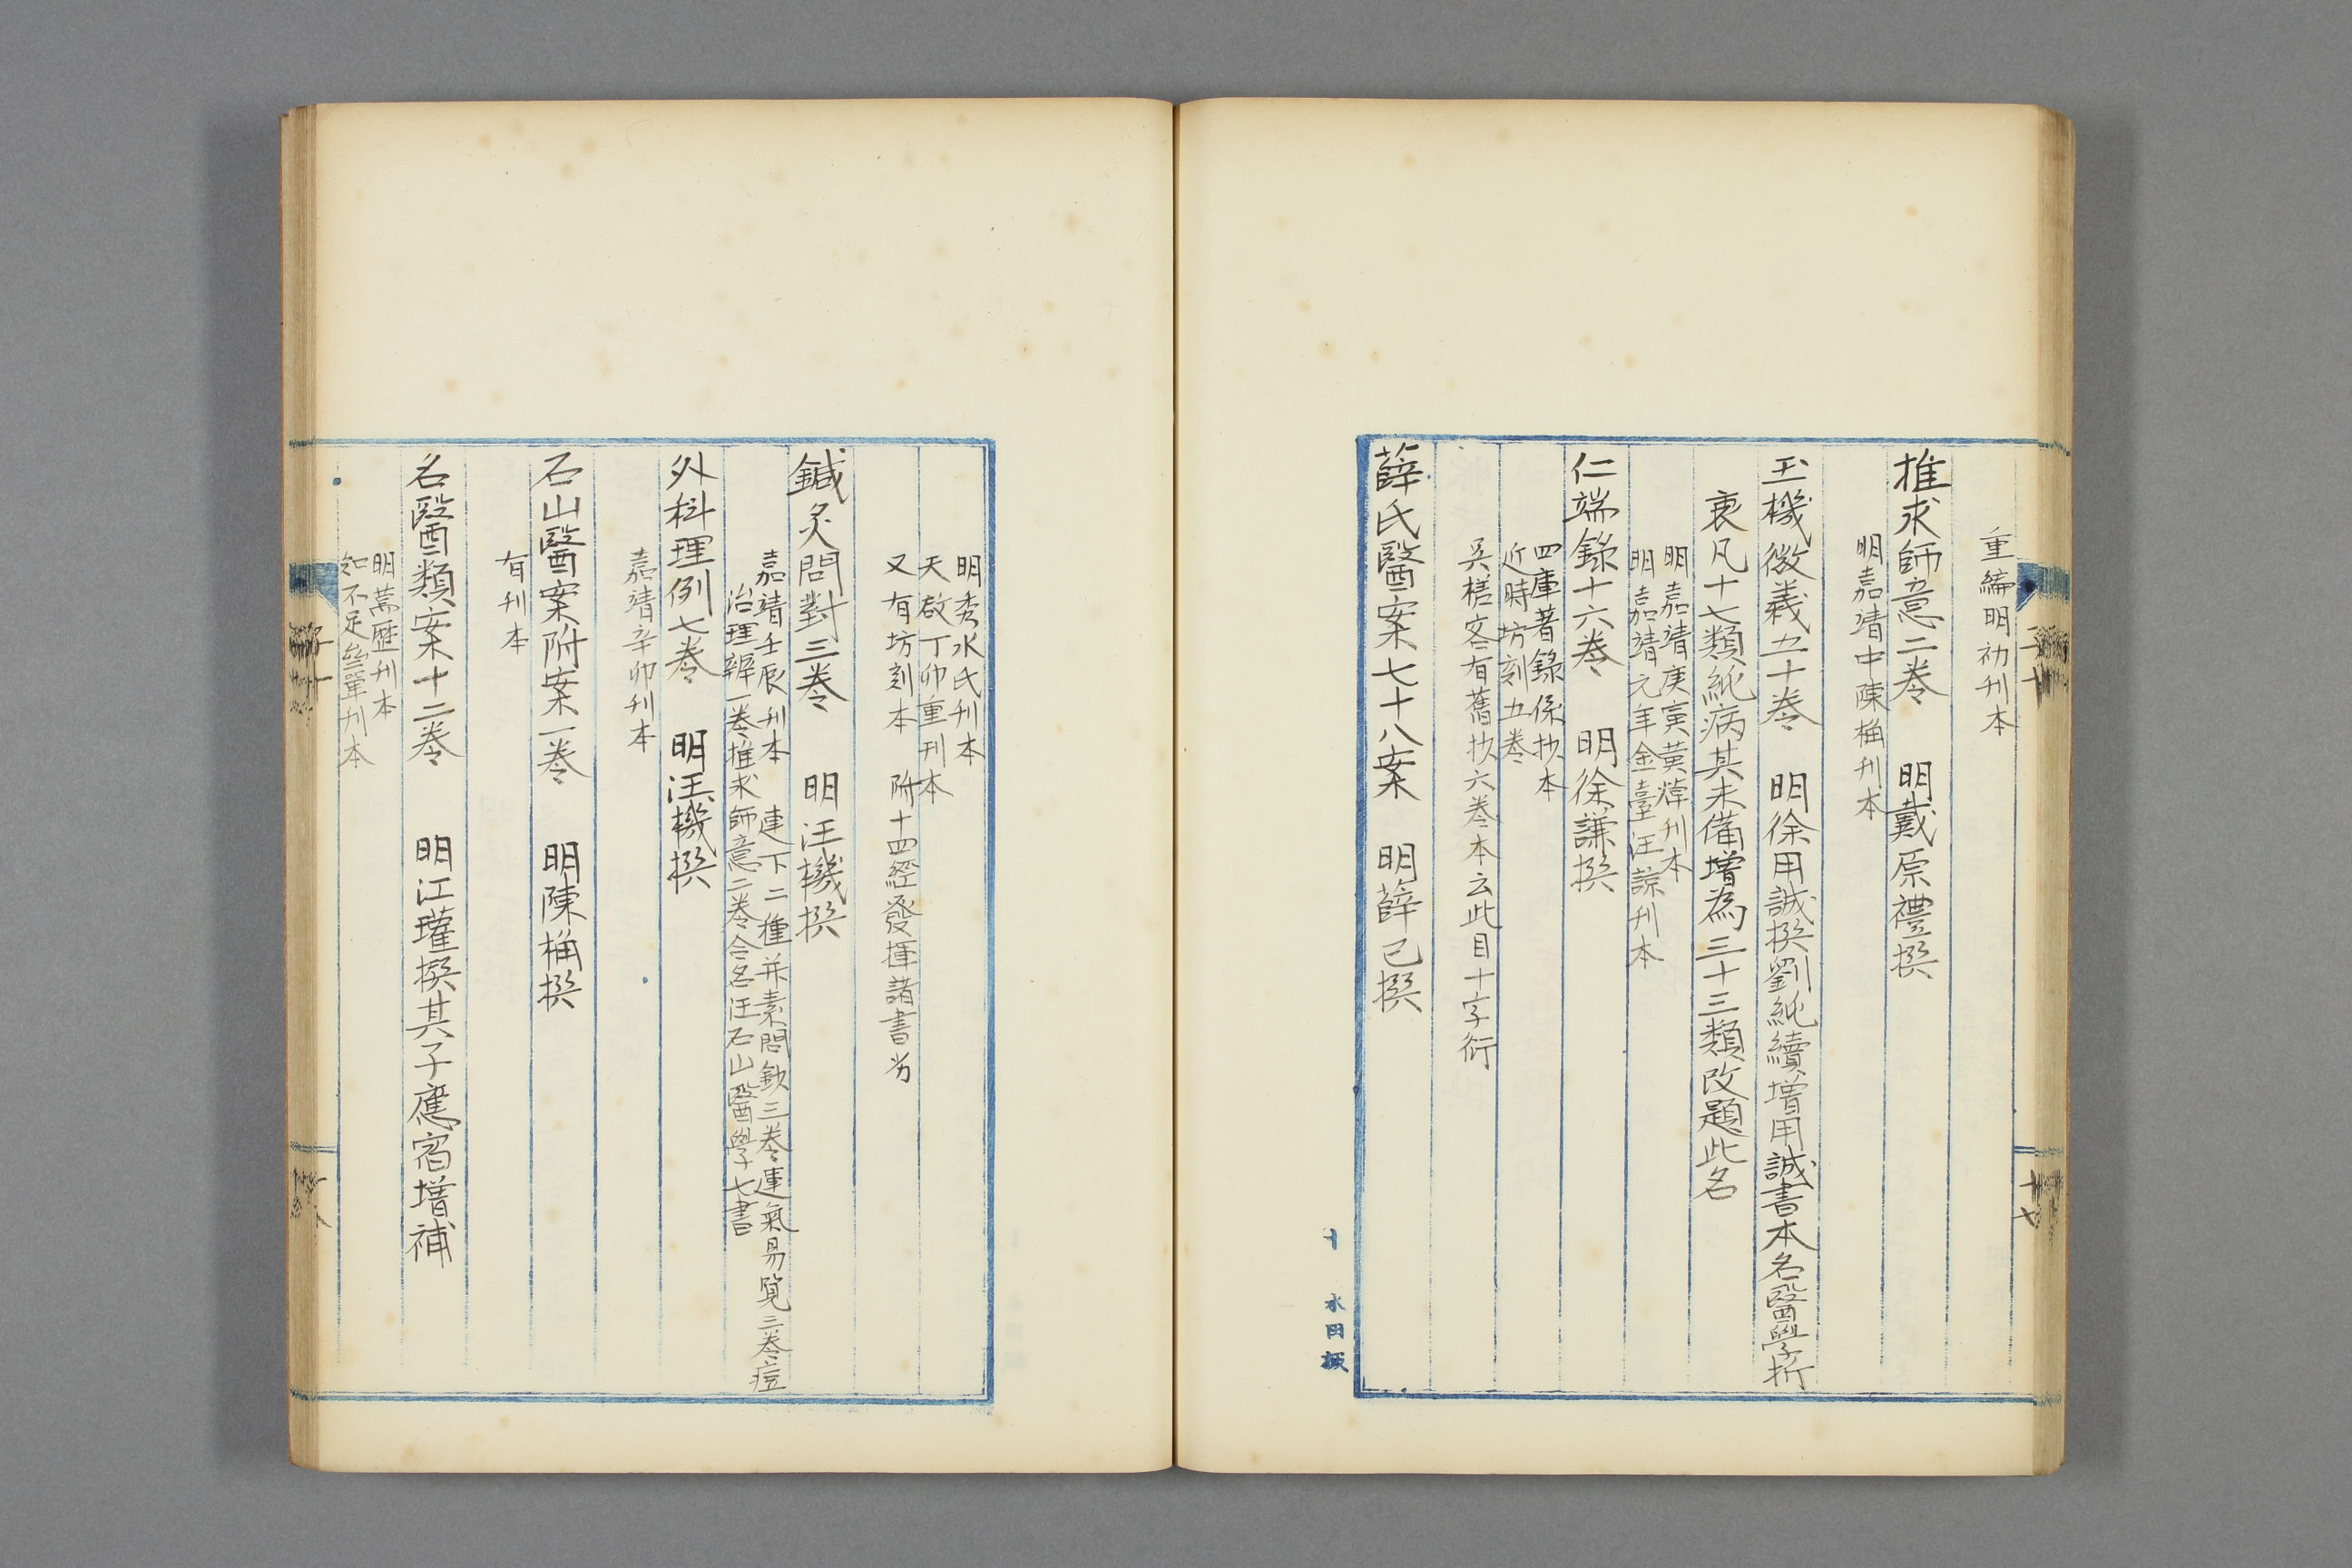 重編明初刊本
推求師意二卷　明戴原禮撰
明嘉靖中陳桷刊本
玉機微義五十卷　明徐用誠撰劉純續增用誠書本名醫學折
衷凡十七類純病其未備增為三十三類改題此名
明嘉靖庚寅黃焯刊本
明嘉靖元年金臺汪諒刊本
仁端錄十六卷　明徐謙撰
四庫著錄係抄本
近時坊刻五卷
吳槎客有舊抄六卷本云此目十字衍
薛氏醫案七十八案　明薛己撰
十七
水田板
明秀水氏刊本
天啟丁卯重刊本
又有坊刻本　附十四經發揮諸書劣
鍼灸問對三卷　明汪機撰
嘉靖壬辰刊本　連下二種并素問鈔三卷運氣易覽三卷痘
治理辨一卷推求師意二卷合名汪石山醫學七書
外科理例七卷　明汪機撰
嘉靖辛卯刊本
石山醫案附案一卷　明陳桷撰
有刊本
名醫類案十二卷　明江瓘撰其子應宿增補
明萬曆刊本
知不足齋單刊本